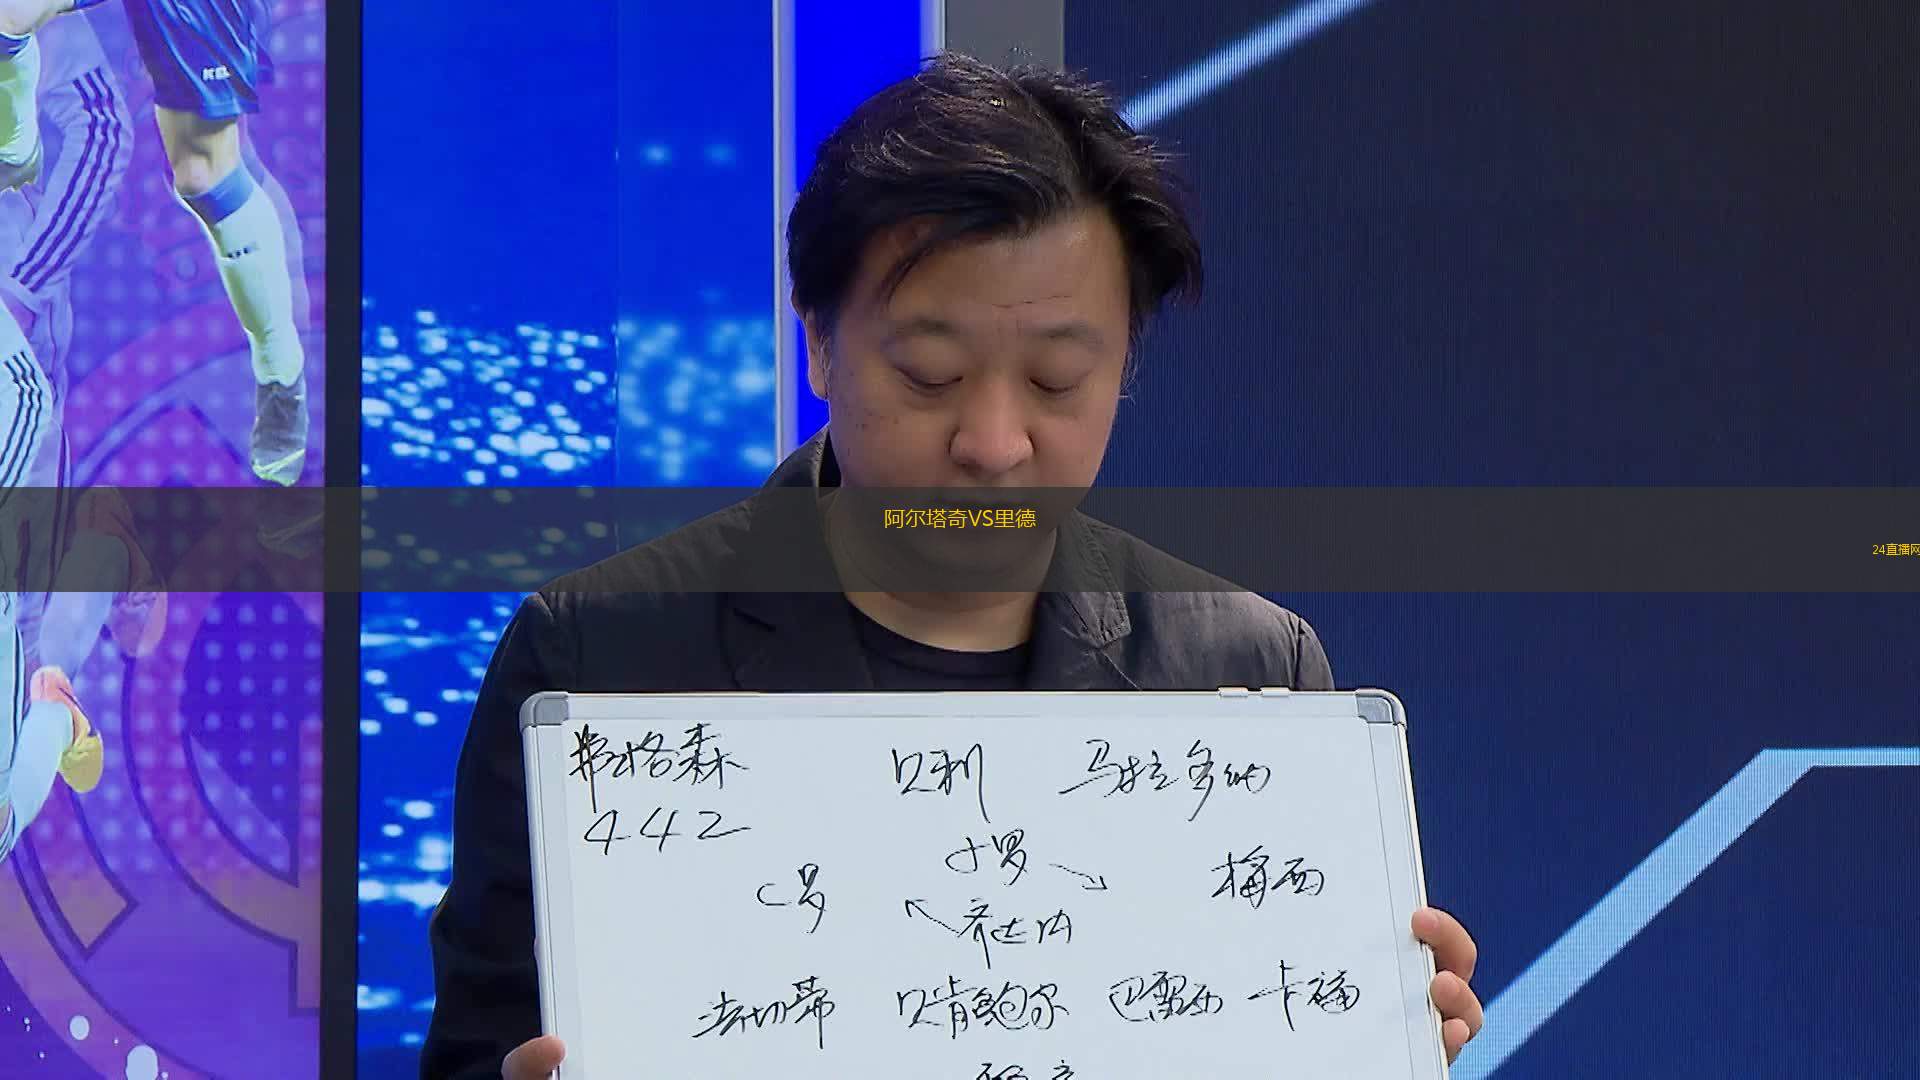 阿尔塔奇VS里德
24直播网
弗格森 贝利 马拉多纳
442
小罗
C罗 梅西
齐达内
法切蒂 贝肯鲍尔 巴雷西 卡福